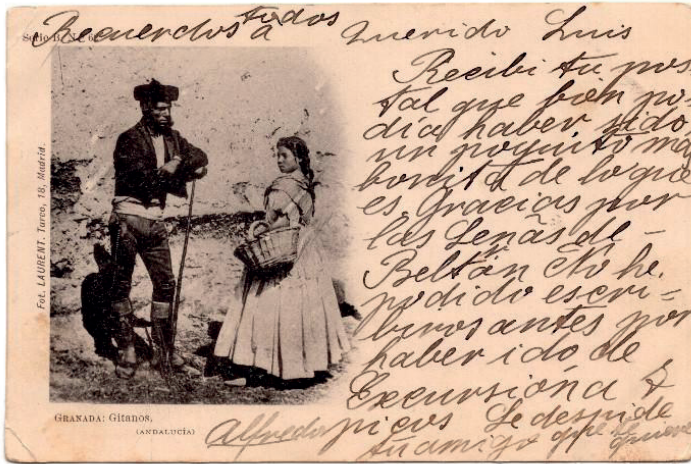 Serie B. N.º 6
Recuerdos a todos
Querido Luis
Recibi tu pos
tal que bien po-
día haber sido
un poquito ma
bonita de lo que
es Gracias por
las Señas de -
Beltán No he.
podido escri=
biros antes por
haber ido de
Excursióna
picos Se despide
tu amigo que te quiere
Alfredo
Fot. LAURENT. Turco, 18, Madrid.
GRANADA: Gitanos.
(ANDALUCÍA)